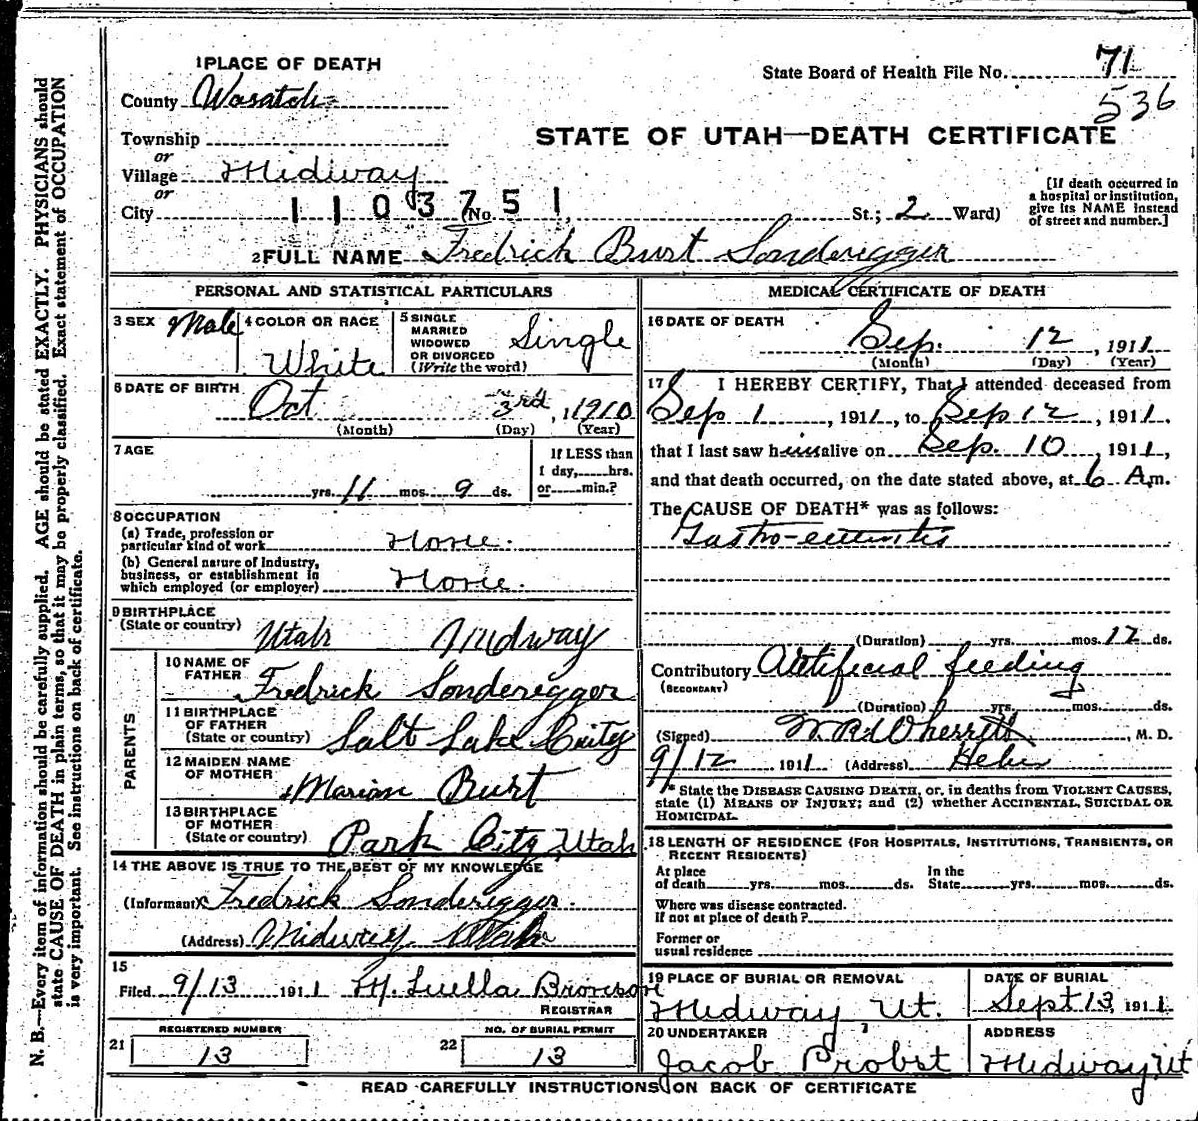 1 PLACE OF DEATH
County Wasatch
Township
or
Village Midway
or
City (No.
1 1 0 3 7 5 1
St.; 2 Ward)
State Board of Health File No. 71
536
STATE OF UTAH—DEATH CERTIFICATE
[If death occurred in
a hospital or institution,
give its NAME instead
of street and number.]
2 FULL NAME Fredrick Burt Sonderegger
PERSONAL AND STATISTICAL PARTICULARS
3 SEX Male
4 COLOR OR RACE
White
5 SINGLE
MARRIED
WIDOWED
OR DIVORCED
(Write the word)
Single
6 DATE OF BIRTH
Oct 3rd, 1910
(Month) (Day) (Year)
7 AGE
yrs. 11 mos. 9 ds.
If LESS than
1 day, hrs.
or min.?
8 OCCUPATION
(a) Trade, profession or
particular kind of work None.
(b) General nature of industry,
business, or establishment in
which employed (or employer) None.
9 BIRTHPLACE
(State or country) Utah Midway
PARENTS
10 NAME OF
FATHER Fredrick Sonderegger
11 BIRTHPLACE
OF FATHER
(State or country) Salt Lake City
12 MAIDEN NAME
OF MOTHER Marion Burt
13 BIRTHPLACE
OF MOTHER
(State or country) Park City, Utah
14 THE ABOVE IS TRUE TO THE BEST OF MY KNOWLEDGE
(Informant) Fredrick Sonderegger.
(Address) Midway, Utah
15
Filed 9/13 1911 M. Luella Bronson
REGISTRAR
REGISTERED NUMBER
21 13
NO. OF BURIAL PERMIT
22 13
MEDICAL CERTIFICATE OF DEATH
16 DATE OF DEATH
Sep. 12, 1911
(Month) (Day) (Year)
17 I HEREBY CERTIFY, That I attended deceased from
Sep 1, 1911, to Sep 12, 1911,
that I last saw him alive on Sep. 10, 1911,
and that death occurred, on the date stated above, at 6 A.m.
The CAUSE OF DEATH* was as follows:
Gastro-enteritis
(Duration) yrs. mos. 12 ds.
Contributory Artificial feeding
(SECONDARY)
(Duration) yrs. mos. ds.
(Signed) M. D.
9/12 1911 (Address) Heber
* State the DISEASE CAUSING DEATH, or, in deaths from VIOLENT CAUSES,
state (1) MEANS OF INJURY; and (2) whether ACCIDENTAL, SUICIDAL OR
HOMICIDAL.
18 LENGTH OF RESIDENCE (FOR HOSPITALS, INSTITUTIONS, TRANSIENTS, OR
RECENT RESIDENTS)
At place
of death yrs. mos. ds.
In the
State yrs. mos. ds.
Where was disease contracted.
If not at place of death?
Former or
usual residence
19 PLACE OF BURIAL OR REMOVAL
Midway Ut.
DATE OF BURIAL
Sept 13, 1911.
20 UNDERTAKER
Jacob Probst
ADDRESS
Midway, Ut
READ CAREFULLY INSTRUCTIONS ON BACK OF CERTIFICATE
N. B.—Every item of information should be carefully supplied. AGE should be stated EXACTLY. PHYSICIANS should
state CAUSE OF DEATH in plain terms, so that it may be properly classified. Exact statement of OCCUPATION
is very important. See instructions on back of certificate.